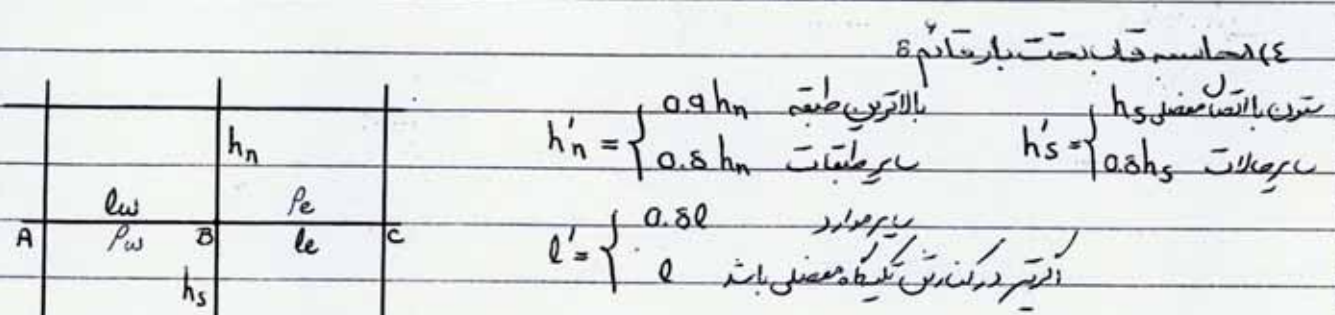 ٤) محاسبه قاب تحت بار قائم :
h'n = { 0.9 hn بالاترین طبقه
0.8 hn سایر طبقات
h's = { hs ستون با اتصال مفصلی
0.8hs سایر حالات
l' = { 0.8l سایر موارد
l اگر تیر در کنارش تکیه‌گاه مفصلی باشد
hn
lw Pe
A Pw B le C
hs